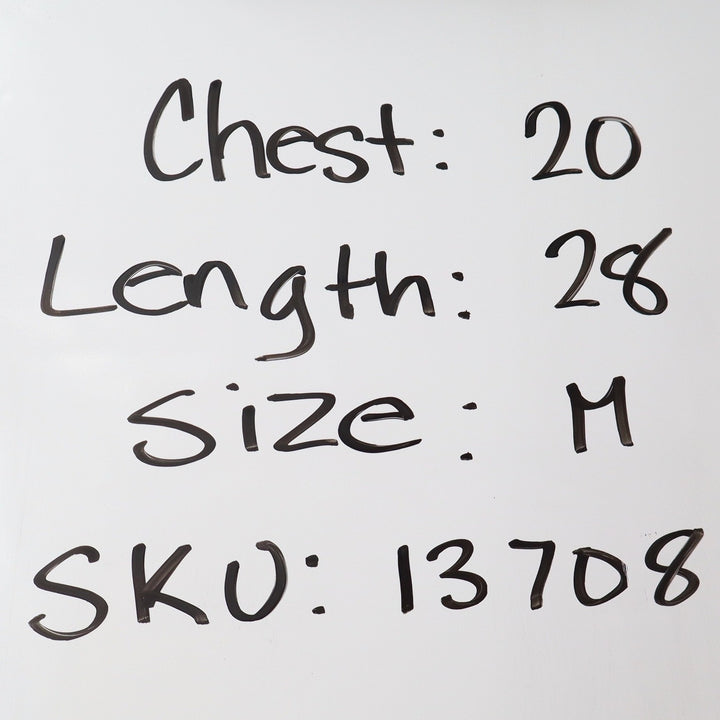 Chest: 20
Length: 28
Size: M
SKU: 13708